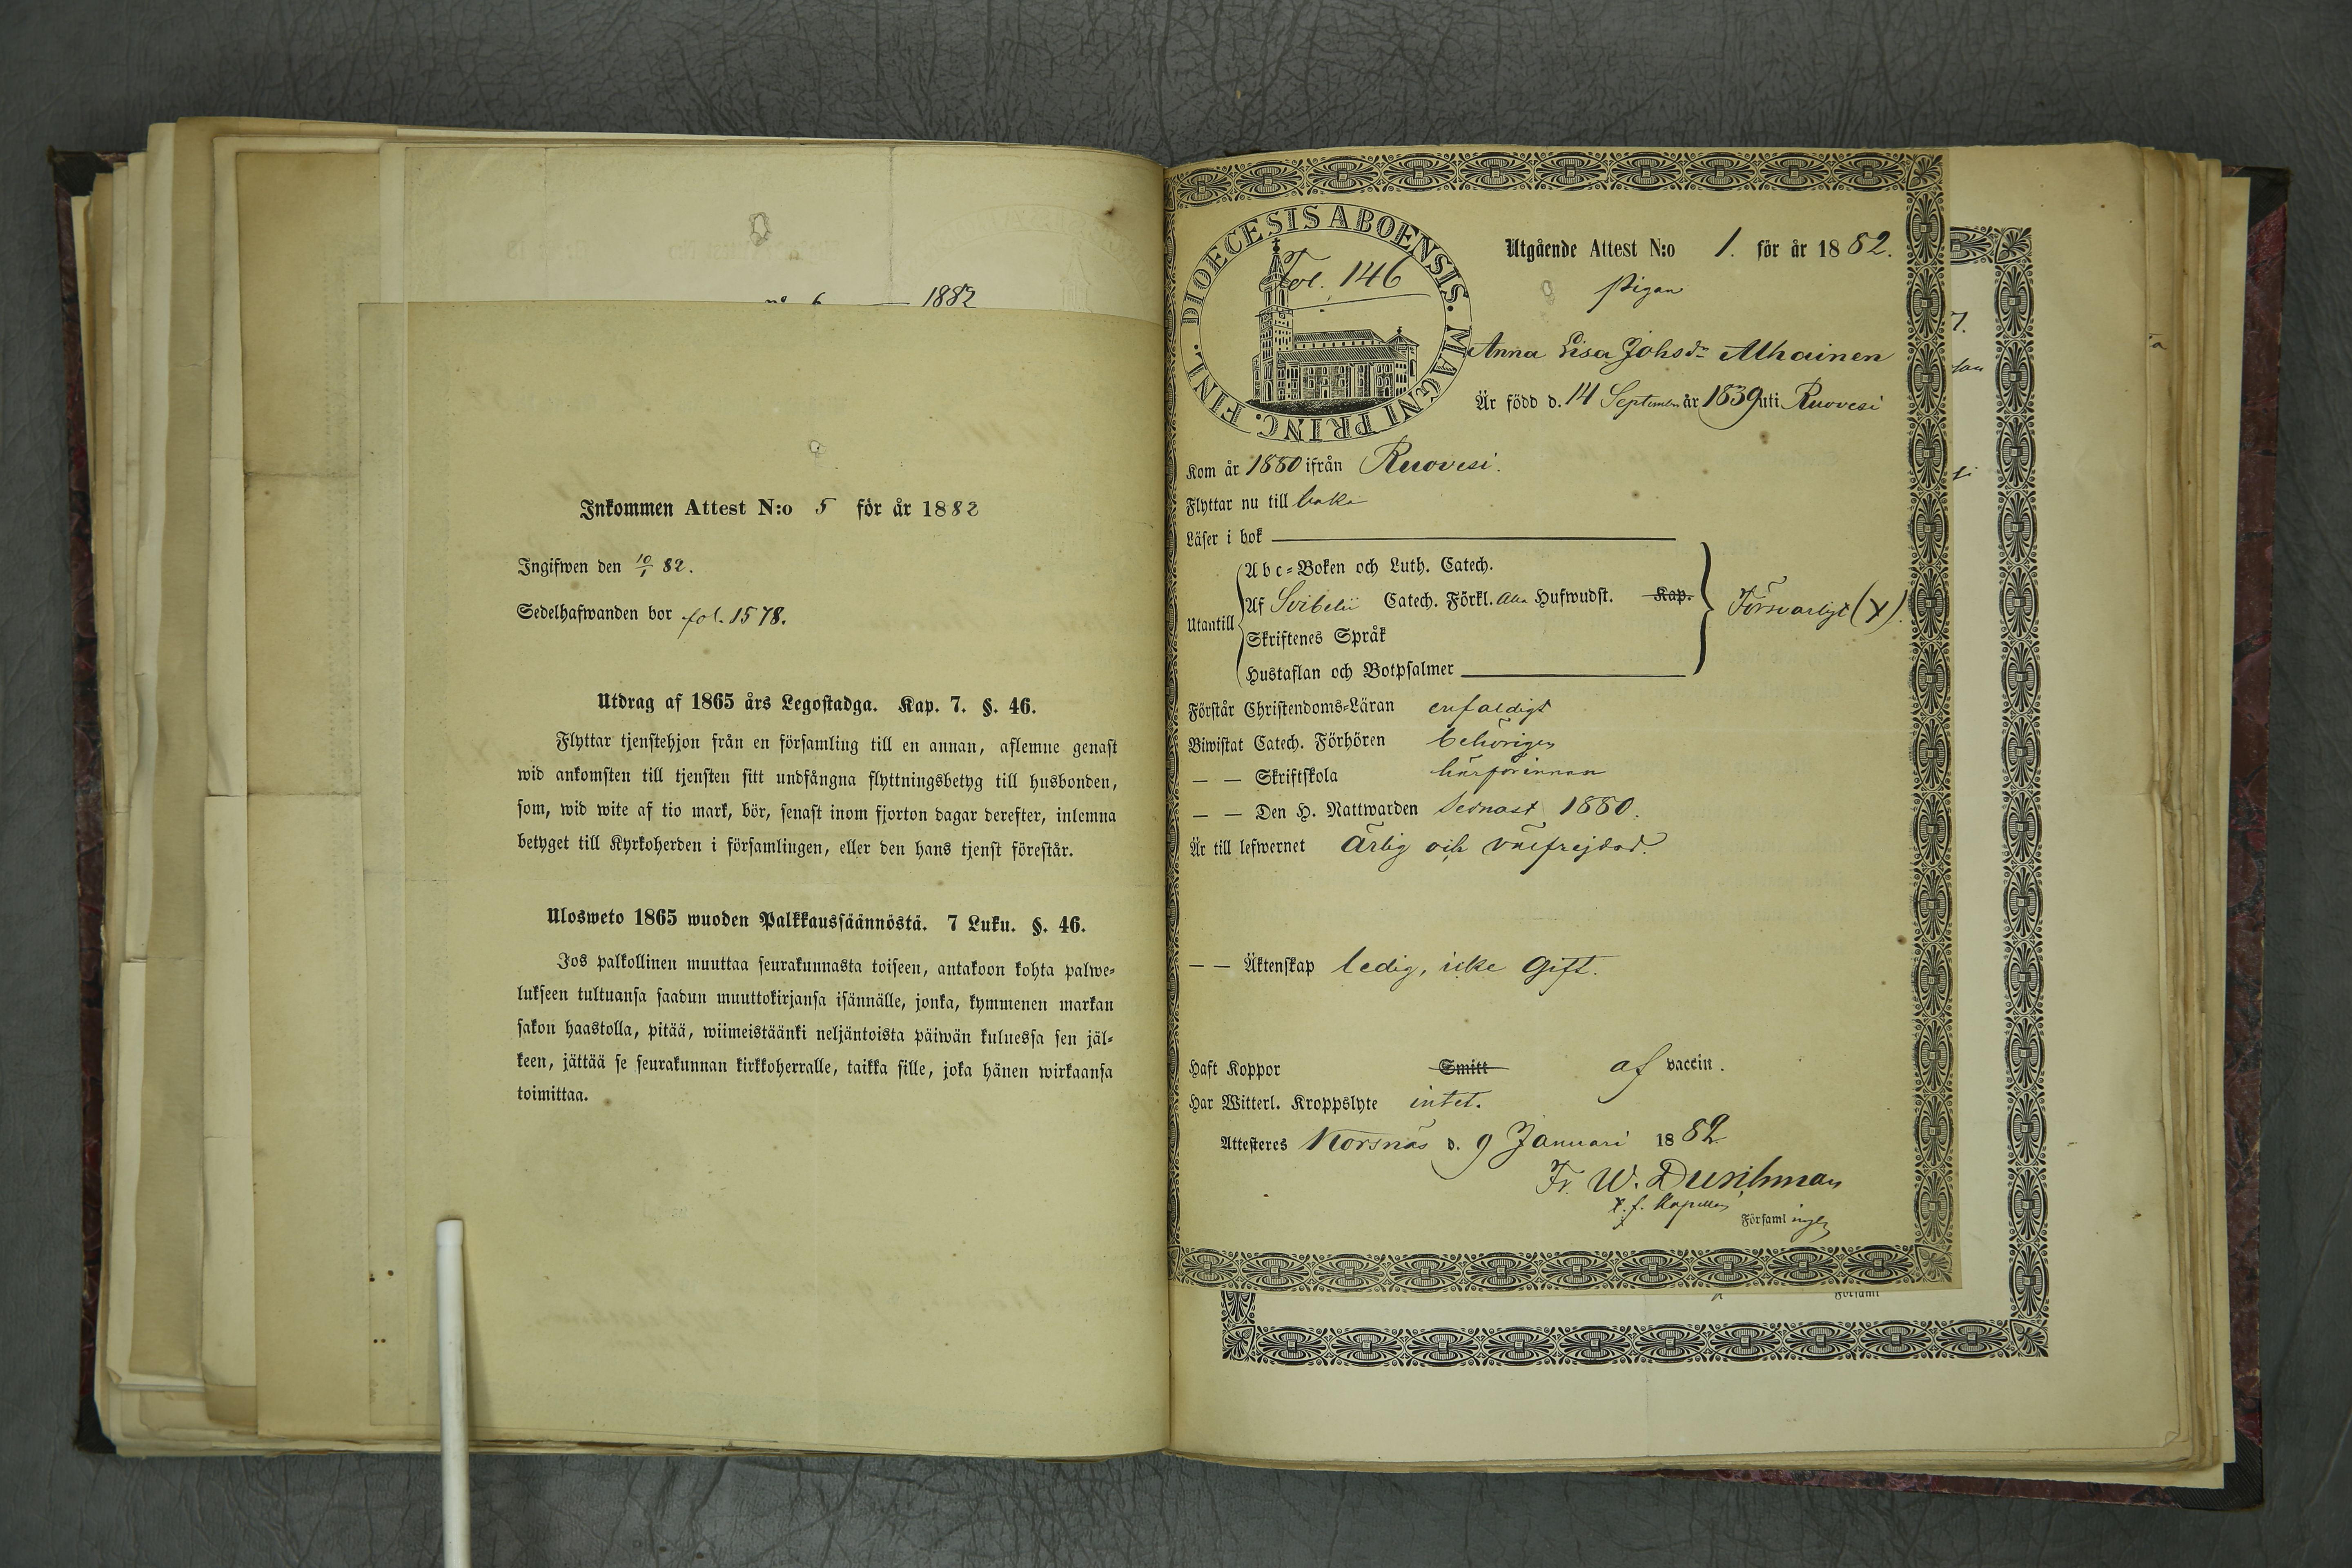 nº 6 — 1882
Inkommen Attest N:o 5 för år 1882
Ingifwen den 10/1 82.
Sedelhafwanden bor fol. 1578.
Utdrag af 1865 års Legostadga. Kap. 7. §. 46.
Flyttar tjenstehjon från en församling till en annan, aflemne genast
wid ankomsten till tjensten sitt undfångna flyttningsbetyg till husbonden,
som, wid wite af tio mark, bör, senast inom fjorton dagar derefter, inlemna
betyget till Kyrkoherden i församlingen, eller den hans tjenst förestår.
Ulosweto 1865 wuoden Palkkaussäännöstä. 7 Luku. §. 46.
Jos palkollinen muuttaa seurakunnasta toiseen, antakoon kohta palwe-
lukseen tultuansa saadun muuttokirjansa isännälle, jonka, kymmenen markan
sakon haastolla, pitää, wiimeistäänki neljäntoista päiwän kuluessa sen jäl-
keen, jättää se seurakunnan kirkkoherralle, taikka sille, joka hänen wirkaansa
toimittaa.
DIOECESIS ABOENSIS. MAGNI PRINC. FINL.
Fol. 146
Utgående Attest N:o 1. för år 1882.
Pigan
Anna Lisa Johsdr Alhainen
Är född d. 14 September år 1839 uti Ruovesi
Kom år 1880 ifrån Ruovesi.
Flyttar nu till baka
Läser i bok
Utantill
Abc-Boken och Luth. Catech.
Af Svibelii Catech. Förkl. alla Hufwudst. Kap.
Skriftenes Språk
Hustaflan och Botpsalmer
Försvarligt (x).
Förstår Christendoms-Läran enfaldigt
Biwistat Catech. Förhören behörigen
— — Skriftskola härförinnan
— — Den H. Nattwarden sednast 1880.
Är till lefwernet ärlig och välfrejdad.
— — Äktenskap ledig, icke gift.
Haft Koppor Smitt af vaccin.
Har Witterl. Kroppslyte intet.
Attesteres Korsnäs d. 9 Januari 1882
Fr. W. Durchman
t. f. Kapellan
Församlingen
Församl